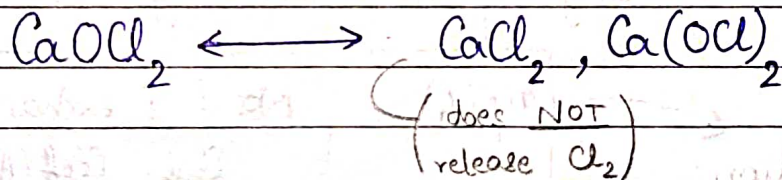 CaOCl₂ ⟷ CaCl₂, Ca(OCl)₂
(does NOT
release Cl₂)